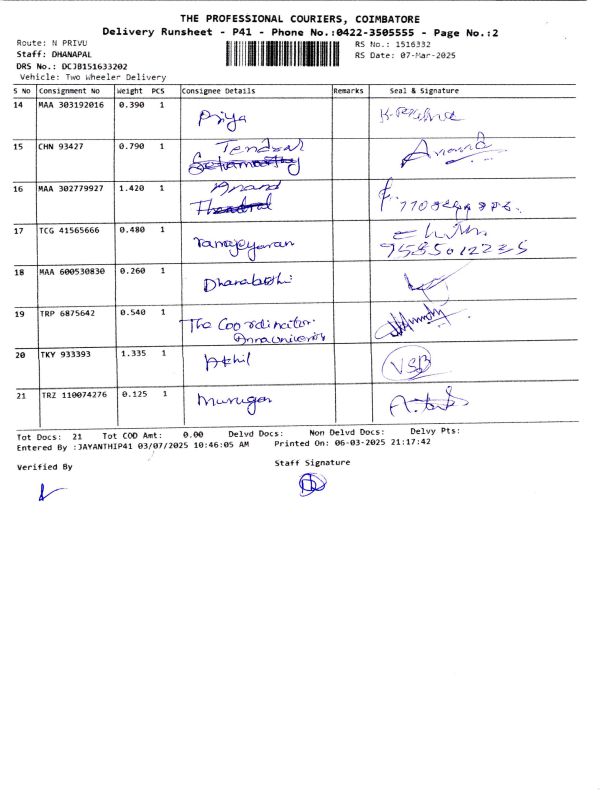 THE PROFESSIONAL COURIERS, COIMBATORE
Delivery Runsheet - P41 - Phone No.:0422-3505555 - Page No.:2
Route: N PRIVU RS No.: 1516332
Staff: DHANAPAL RS Date: 07-Mar-2025
DRS No.: DCJB151633202
Vehicle: Two Wheeler Delivery
S No Consignment No Weight PCS Consignee Details Remarks Seal & Signature
14 MAA 303192016 0.390 1 Priya
15 CHN 93427 0.790 1 Tendral Anand
16 MAA 302779927 1.420 1 Anand
Thendral
17 TCG 41565666 0.480 1 ramajeyaran
9585012235
18 MAA 600530830 0.260 1
19 TRP 6875642 0.540 1 The Coordinator
Anna University
20 TKY 933393 1.335 1 Akhil VSB
21 TRZ 110074276 0.125 1 murugan
Tot Docs: 21 Tot COD Amt: 0.00 Delvd Docs: Non Delvd Docs: Delvy Pts:
Entered By :JAYANTHIP41 03/07/2025 10:46:05 AM Printed On: 06-03-2025 21:17:42
Verified By Staff Signature